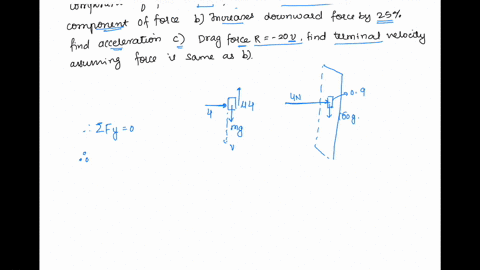 component of force b) Increases downward force by 25%
find acceleration c) Drag force R = -20v, find terminal velocity
assuming force is same as b).
4N
0.9
50g.
4
mg
v
∴ ΣFy = 0
∴